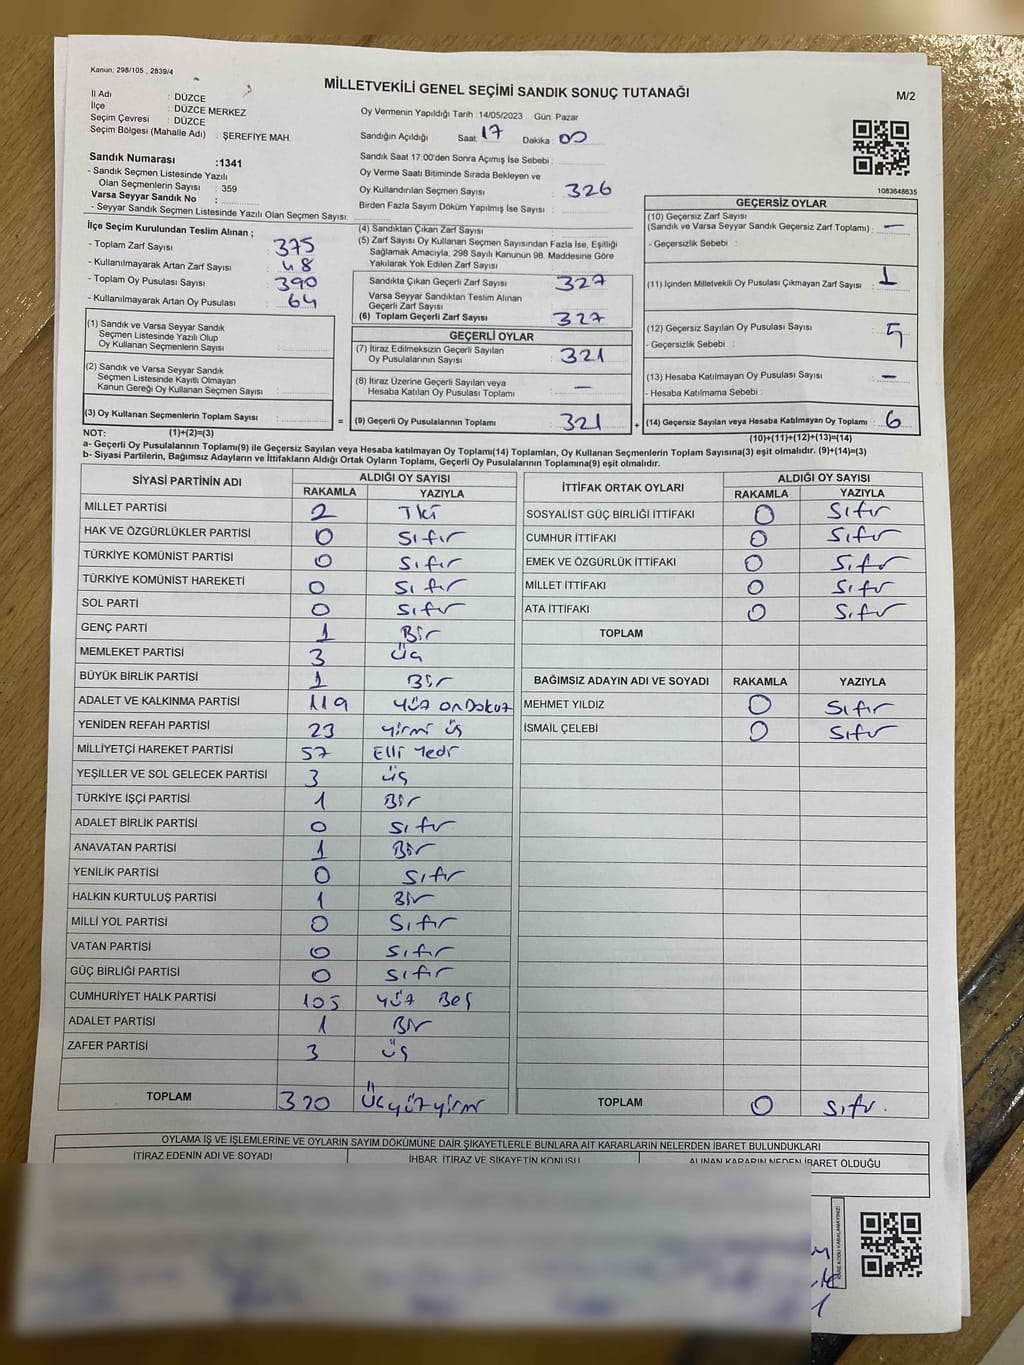 Kanun, 298/105 , 2839/4
MİLLETVEKİLİ GENEL SEÇİMİ SANDIK SONUÇ TUTANAĞI
M/2
İl Adı : DÜZCE
İlçe : DÜZCE MERKEZ
Seçim Çevresi : DÜZCE
Seçim Bölgesi (Mahalle Adı) : ŞEREFİYE MAH.
Oy Vermenin Yapıldığı Tarih : 14/05/2023 Gün: Pazar
Sandığın Açıldığı Saat 17 Dakika : 00
Sandık Numarası :1341
- Sandık Seçmen Listesinde Yazılı
Olan Seçmenlerin Sayısı : 359
Varsa Seyyar Sandık No :
- Seyyar Sandık Seçmen Listesinde Yazılı Olan Seçmen Sayısı:
Sandık Saat 17.00'den Sonra Açımış İse Sebebi :
Oy Verme Saati Bitiminde Sırada Bekleyen ve
Oy Kullandırılan Seçmen Sayısı : 326
Birden Fazla Sayım Döküm Yapılmış İse Sayısı :
1083648635
İlçe Seçim Kurulundan Teslim Alınan ;
- Toplam Zarf Sayısı : 375
- Kullanılmayarak Artan Zarf Sayısı : 48
- Toplam Oy Pusulası Sayısı : 390
- Kullanılmayarak Artan Oy Pusulası : 64
(1) Sandık ve Varsa Seyyar Sandık
Seçmen Listesinde Yazılı Olup
Oy Kullanan Seçmenlerin Sayısı :
(2) Sandık ve Varsa Seyyar Sandık
Seçmen Listesinde Kayıtlı Olmayan
Kanun Gereği Oy Kullanan Seçmen Sayısı :
(3) Oy Kullanan Seçmenlerin Toplam Sayısı :
(1)+(2)=(3)
(4) Sandıktan Çıkan Zarf Sayısı :
(5) Zarf Sayısı Oy Kullanan Seçmen Sayısından Fazla İse, Eşitliği
Sağlamak Amacıyla, 298 Sayılı Kanunun 98. Maddesine Göre
Yakılarak Yok Edilen Zarf Sayısı :
Sandıkta Çıkan Geçerli Zarf Sayısı : 327
Varsa Seyyar Sandıktan Teslim Alınan
Geçerli Zarf Sayısı :
(6) Toplam Geçerli Zarf Sayısı : 327
GEÇERLİ OYLAR
(7) İtiraz Edilmeksizin Geçerli Sayılan
Oy Pusulalarının Sayısı : 321
(8) İtiraz Üzerine Geçerli Sayılan veya
Hesaba Katılan Oy Pusulaları Toplamı : —
= (9) Geçerli Oy Pusulalarının Toplamı : 321
GEÇERSİZ OYLAR
(10) Geçersiz Zarf Sayısı
(Sandık ve Varsa Seyyar Sandık Geçersiz Zarf Toplamı) : —
- Geçersizlik Sebebi :
(11) İçinden Milletvekili Oy Pusulası Çıkmayan Zarf Sayısı : 1
(12) Geçersiz Sayılan Oy Pusulası Sayısı : 5
- Geçersizlik Sebebi :
(13) Hesaba Katılmayan Oy Pusulası Sayısı : —
- Hesaba Katılmama Sebebi :
+ (14) Geçersiz Sayılan veya Hesaba Katılmayan Oy Toplamı : 6
(10)+(11)+(12)+(13)=(14)
NOT:
a- Geçerli Oy Pusulalarının Toplamı(9) ile Geçersiz Sayılan veya Hesaba katılmayan Oy Toplamı(14) Toplamları, Oy Kullanan Seçmenlerin Toplam Sayısına(3) eşit olmalıdır. (9)+(14)=(3)
b- Siyasi Partilerin, Bağımsız Adayların ve İttifakların Aldığı Ortak Oyların Toplamı, Geçerli Oy Pusulalarının Toplamına(9) eşit olmalıdır.
SİYASİ PARTİNİN ADI ALDIĞI OY SAYISI
RAKAMLA YAZIYLA
MİLLET PARTİSİ 2 İki
HAK VE ÖZGÜRLÜKLER PARTİSİ 0 Sıfır
TÜRKİYE KOMÜNİST PARTİSİ 0 Sıfır
TÜRKİYE KOMÜNİST HAREKETİ 0 Sıfır
SOL PARTİ 0 Sıfır
GENÇ PARTİ 1 Bir
MEMLEKET PARTİSİ 3 Üç
BÜYÜK BİRLİK PARTİSİ 1 Bir
ADALET VE KALKINMA PARTİSİ 119 Yüz OnDokuz
YENİDEN REFAH PARTİSİ 23 Yirmi üç
MİLLİYETÇİ HAREKET PARTİSİ 57 Elli Yedi
YEŞİLLER VE SOL GELECEK PARTİSİ 3 üç
TÜRKİYE İŞÇİ PARTİSİ 1 Bir
ADALET BİRLİK PARTİSİ 0 Sıfır
ANAVATAN PARTİSİ 1 Bir
YENİLİK PARTİSİ 0 Sıfır
HALKIN KURTULUŞ PARTİSİ 1 Bir
MİLLİ YOL PARTİSİ 0 Sıfır
VATAN PARTİSİ 0 Sıfır
GÜÇ BİRLİĞİ PARTİSİ 0 Sıfır
CUMHURİYET HALK PARTİSİ 105 Yüz Beş
ADALET PARTİSİ 1 Bir
ZAFER PARTİSİ 3 üç
TOPLAM 320 Üçyüzyirmi
İTTİFAK ORTAK OYLARI ALDIĞI OY SAYISI
RAKAMLA YAZIYLA
SOSYALİST GÜÇ BİRLİĞİ İTTİFAKI 0 Sıfır
CUMHUR İTTİFAKI 0 Sıfır
EMEK VE ÖZGÜRLÜK İTTİFAKI 0 Sıfır
MİLLET İTTİFAKI 0 Sıfır
ATA İTTİFAKI 0 Sıfır
TOPLAM
BAĞIMSIZ ADAYIN ADI VE SOYADI RAKAMLA YAZIYLA
MEHMET YILDIZ 0 Sıfır
İSMAİL ÇELEBİ 0 Sıfır
TOPLAM 0 Sıfır.
OYLAMA İŞ VE İŞLEMLERİNE VE OYLARIN SAYIM DÖKÜMÜNE DAİR ŞİKAYETLERLE BUNLARA AİT KARARLARIN NELERDEN İBARET BULUNDUKLARI
İTİRAZ EDENİN ADI VE SOYADI İHBAR, İTİRAZ VE ŞİKAYETİN KONUSU ALINAN KARARIN NEDEN İBARET OLDUĞU